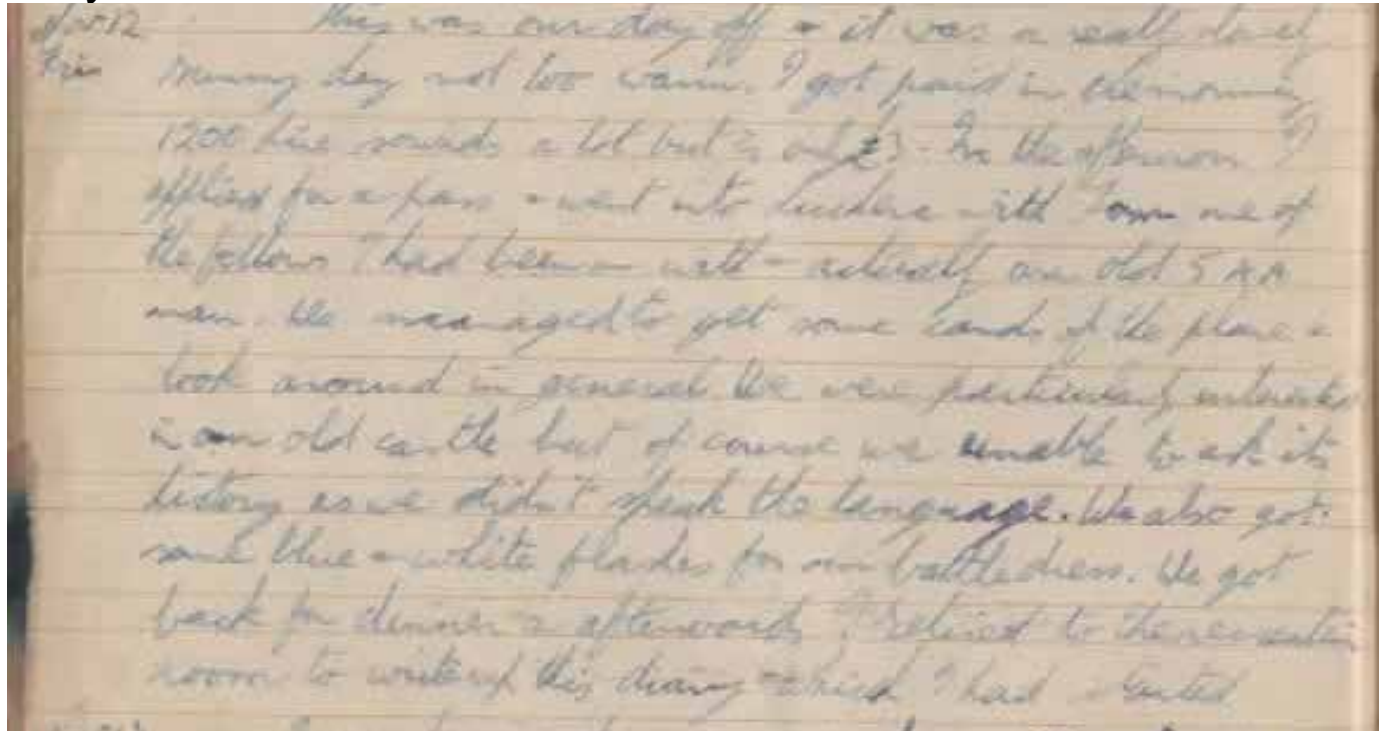 This was our day off & it was a really lovely
Fri sunny day not too warm. I got paid in the morning
1200 lire sounds a lot but is only £3. In the afternoon I
applied for a pass & went into with Tom one of
the fellows I had been in with - actually an old S.A.A
man. We managed to get some cards of the place &
look around in general. We were particularly interested
in an old castle but of course we unable to ask its
history as we didn't speak the language. We also got
some blue & white flashes for our battledress. We got
back for dinner & afterwards I retired to the recreation
room to write up this diary which I had started